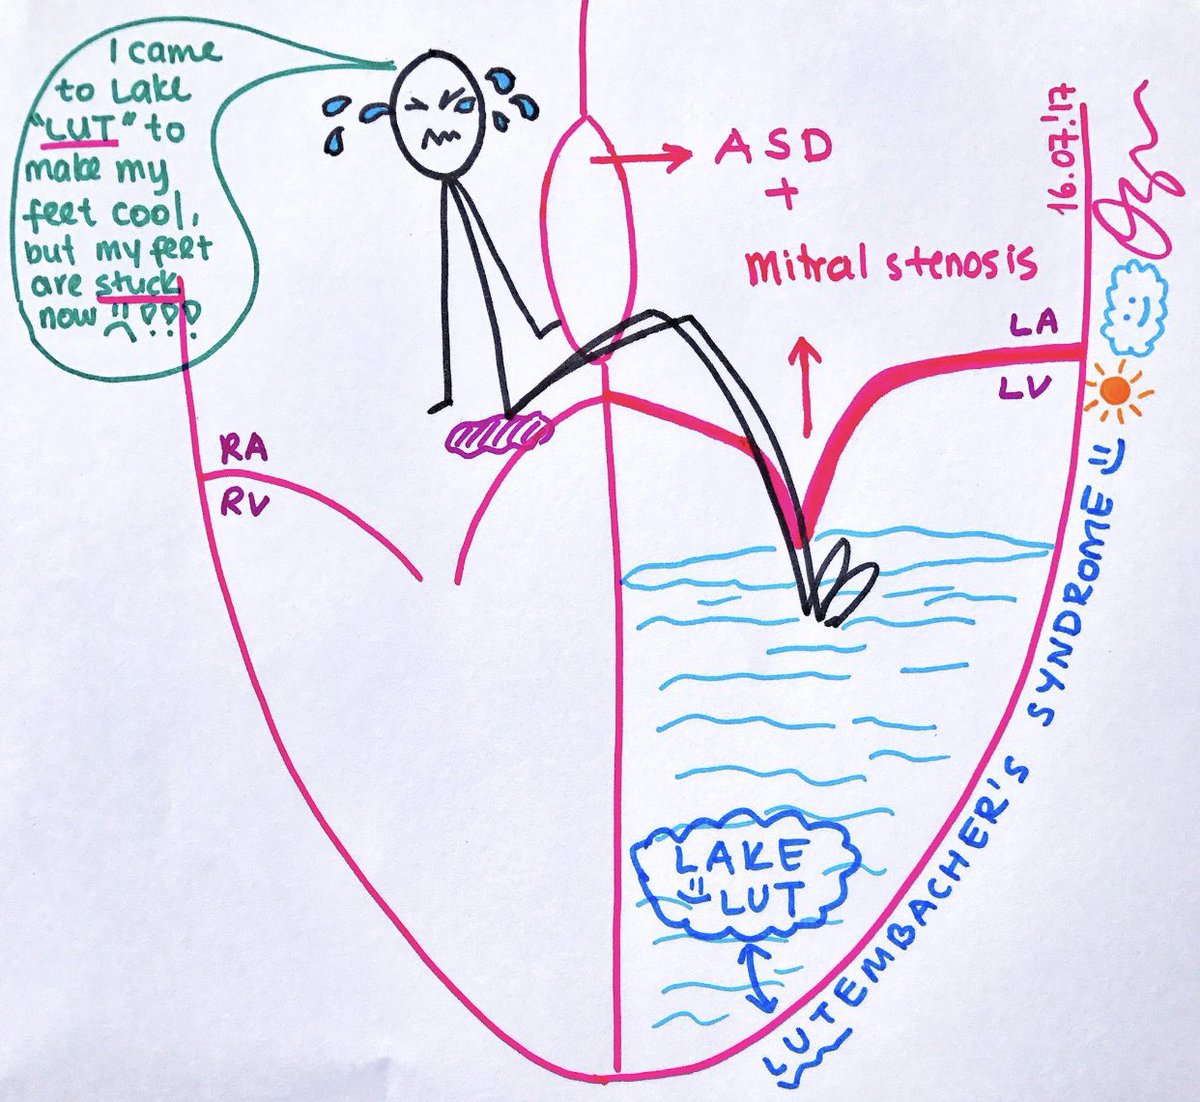 I came
to Lake
"LUT" to
make my
feet cool,
but my feet
are stuck
now
ASD
+
Mitral stenosis
16.07.'17
LA
LV
RA
RV
LAKE
LUT
LUTEMBACHER'S SYNDROME